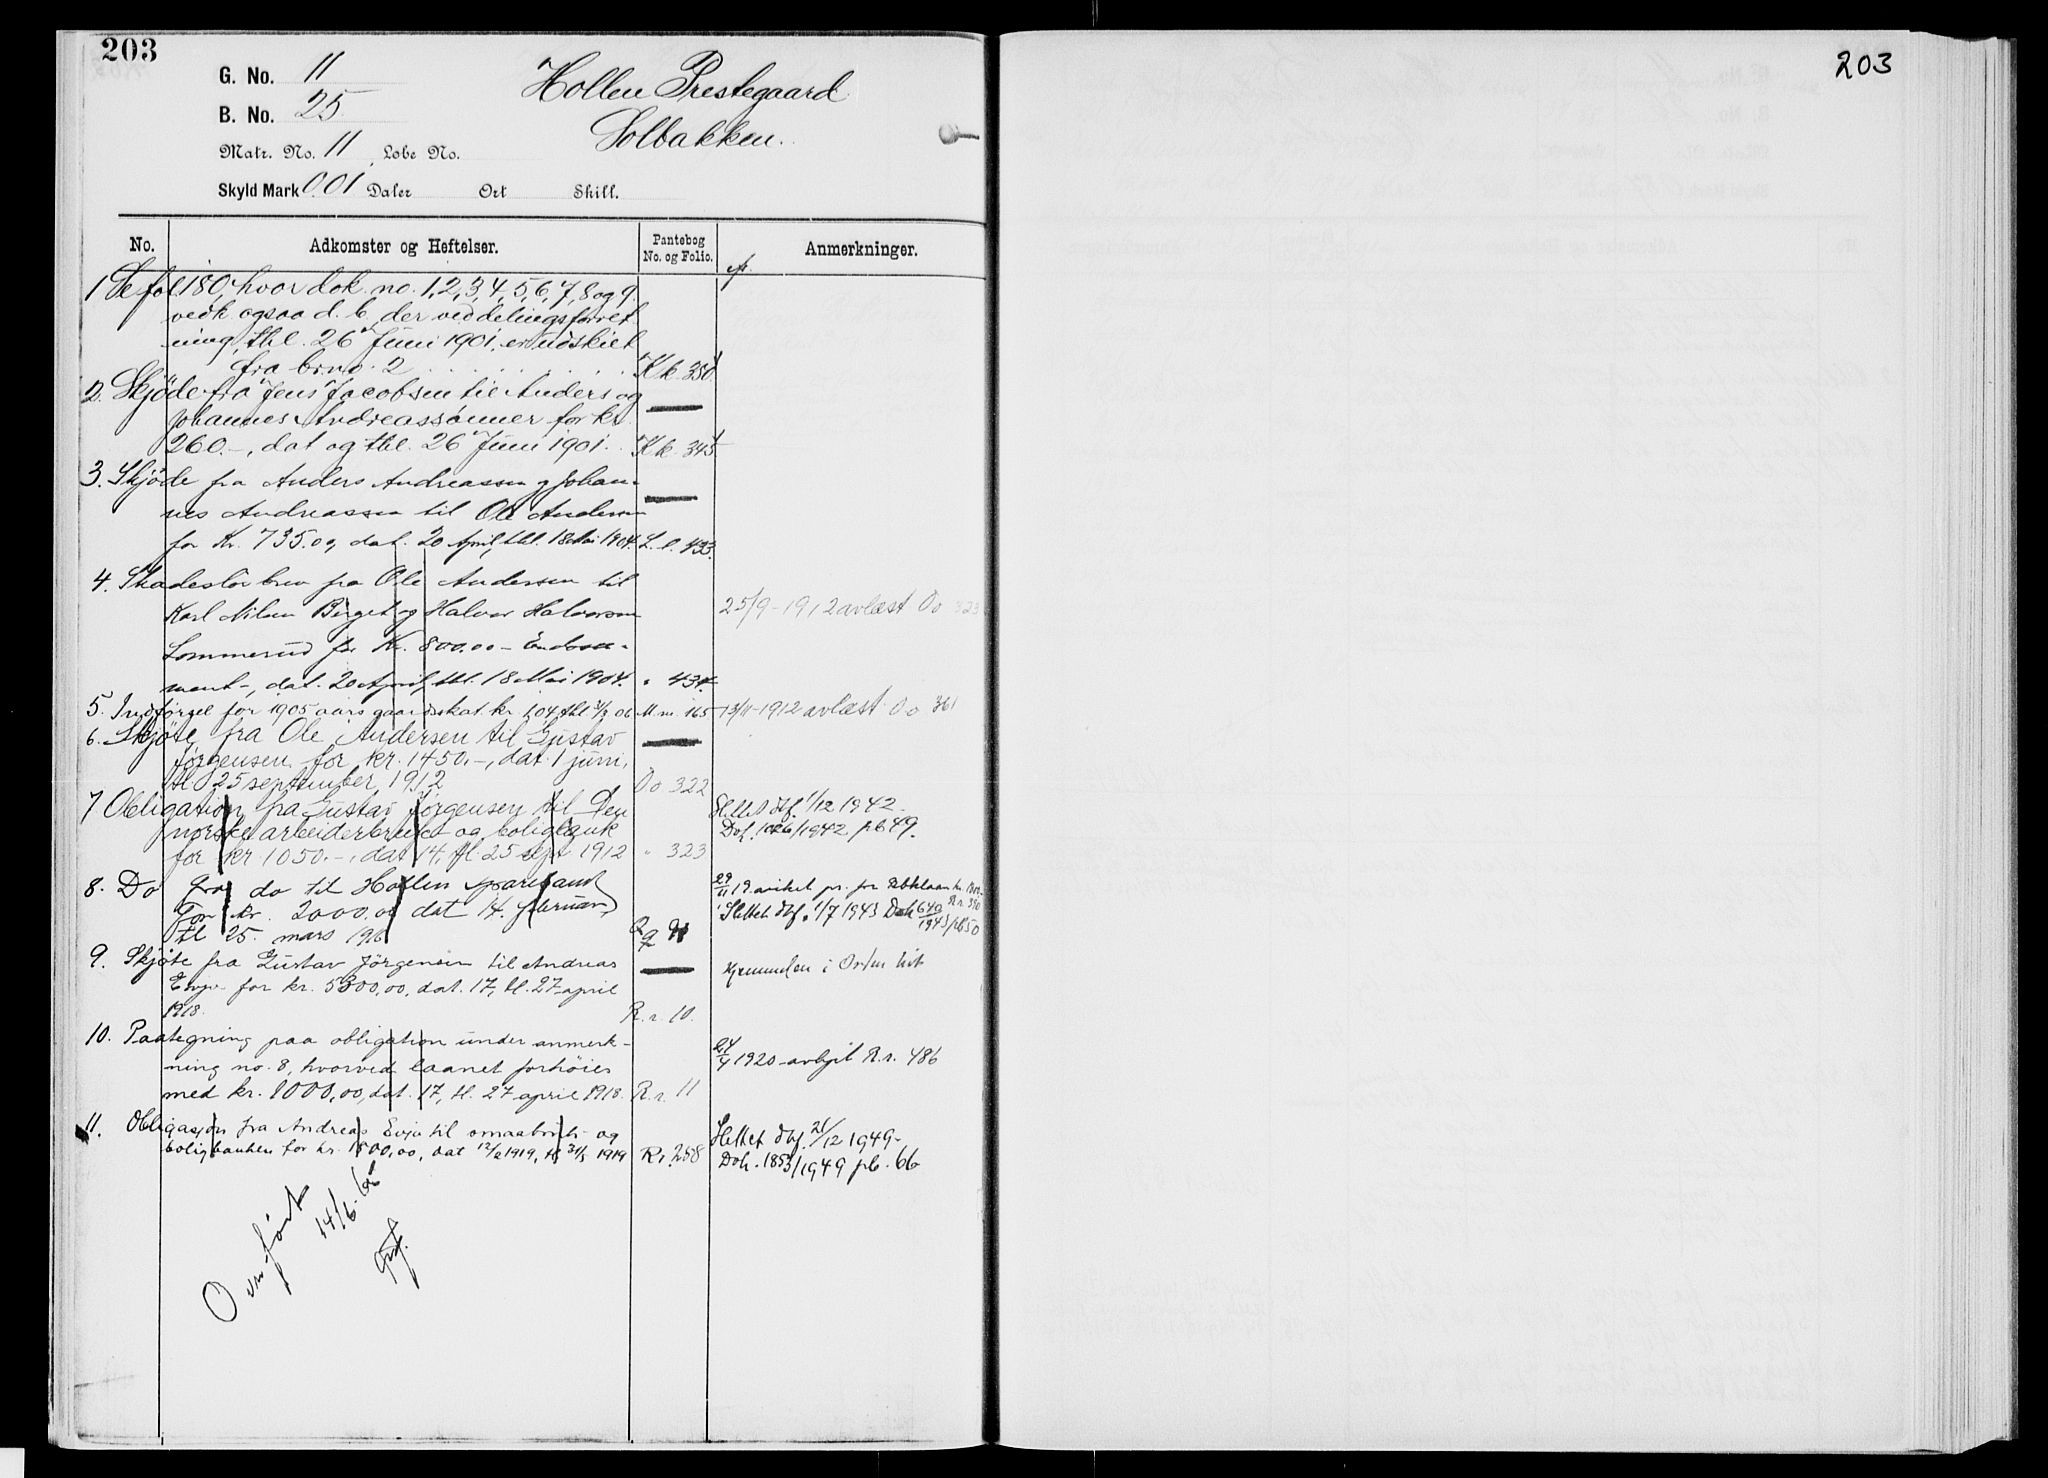 203
G. No. 11
B. No. 25
Matr. No. 11 Løbe No.
Skyld Mark 0.01 Daler Ort Skill.
Hollen Prestegaard
Solbakken.
No. Adkomster og Heftelser. Pantebog No. og Folio. Anmerkninger.
1 Se fol 180, hvor dok. no. 1, 2, 3, 4, 5, 6, 7, 8 og 9.
vedk ogsaa d. b. der ved delingsforret
ning, thl. 26 Juni 1901, er udskilt
fra br.no. 2 K k 350
2. Skjöde fra Jens Jacobsen til Anders og
Johannes Andreassönner for kr
260.–, dat og thl. 26 Juni 1901. K k 345
3. Skjöde fra Anders Andreassen og Johan-
nes Andreassen til Ole Andersen
for Kr. 735.00, dat. 20 April, thl. 18 Mai 1904. L. l. 433.
4. Skadeslösbrev fra Ole Andersen til
Karl Nilsen Berget og Halvor Halvorsen
Lommerud for Kr. 800.00 – Endosse-
ment –, dat. 20 April, thl. 18 Mai 1904. " 434.
25/9-1912 avlæst Oo 323
5. Indførsel for 1905 aars gaardskat kr 1,04, thl 31/3 06 M m. 165 13/11-1912 avlæst Oo 361
6. Skjøte fra Ole Andersen til Gustav
Jørgensen for kr. 1450.–, dat. 1 juni,
tl. 25 september, 1912 Oo 322
7 Obligation fra Gustav Jørgensen til Den
norske arbeiderbruk og boligbank
for kr 1050.–, dat 14, tl. 25 sept 1912 " 323
Slettet iflg. 1/12 1942.
Dok. 1026/1942 pb 49.
8. Do fra do til Hollen Sparebank
For kr. 2000,00 dat 14. februar
tl 25. mars 1916 Q q 91
29/11 19 veket pr. for
Slettet iflg. 1/7 1943 Dok 640/1943 pb 50
9. Skjøte fra Gustav Jörgensen til Andreas
Evju for kr. 5300,00, dat. 17, tl. 27 april
1918. R. r. 10.
10. Paategning paa obligation under anmerk-
ning no. 8, hvorved laanet forhöies
med kr. 1000,00, dat. 17, tl. 27 april 1918. R. r. 11
24/4 1920 avlyst R. r. 486
11. Obligasjon fra Andreas Evju til smaabruk- og
boligbanken for kr. 1500,00, dat 12/2 1919, tl 31/5 1919 R r. 258
Slettet iflg. 21/12 1949.
Dok. 1853/1949 pb. 66
Overført
14/6. 66
203